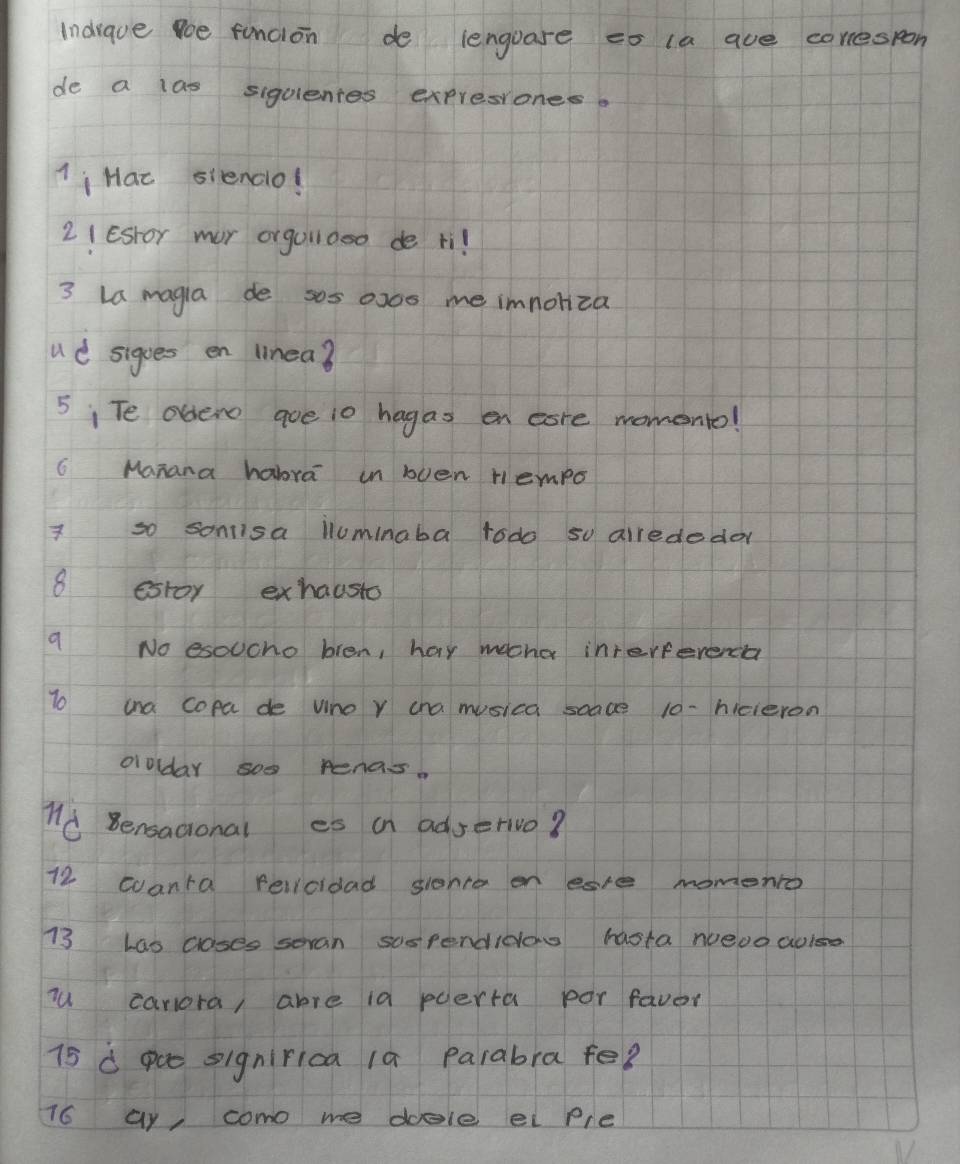 Indique que función de lenguaje es la que correspon
de a las siguientes expresiones.
1 ¡Haz silencio!
2 ¡Estoy muy orgulloso de ti!
3 La magia de sus ojos me imnotiza
4 ¿ sigues en linea?
5 ¡Te ordeno que lo hagas en este momento!
6 Mañana habrá un buen tiempo
7 su sonrisa iluminaba todo su alrededor
8 estoy exhausto
9 No escucho bien, hay mucha interferencia
10 una copa de vino y una musica suave lo-hicieron
olvidar sus penas.
11 ¿ Sensacional es un adjetivo?
12 cuanta felicidad siento en este momento
13 Las clases seran suspendidas hasta nuevo aviso
14 carlota, abre la puerta por favor
15 ¿ que significa la palabra fe?
16 ay, como me duele el pie